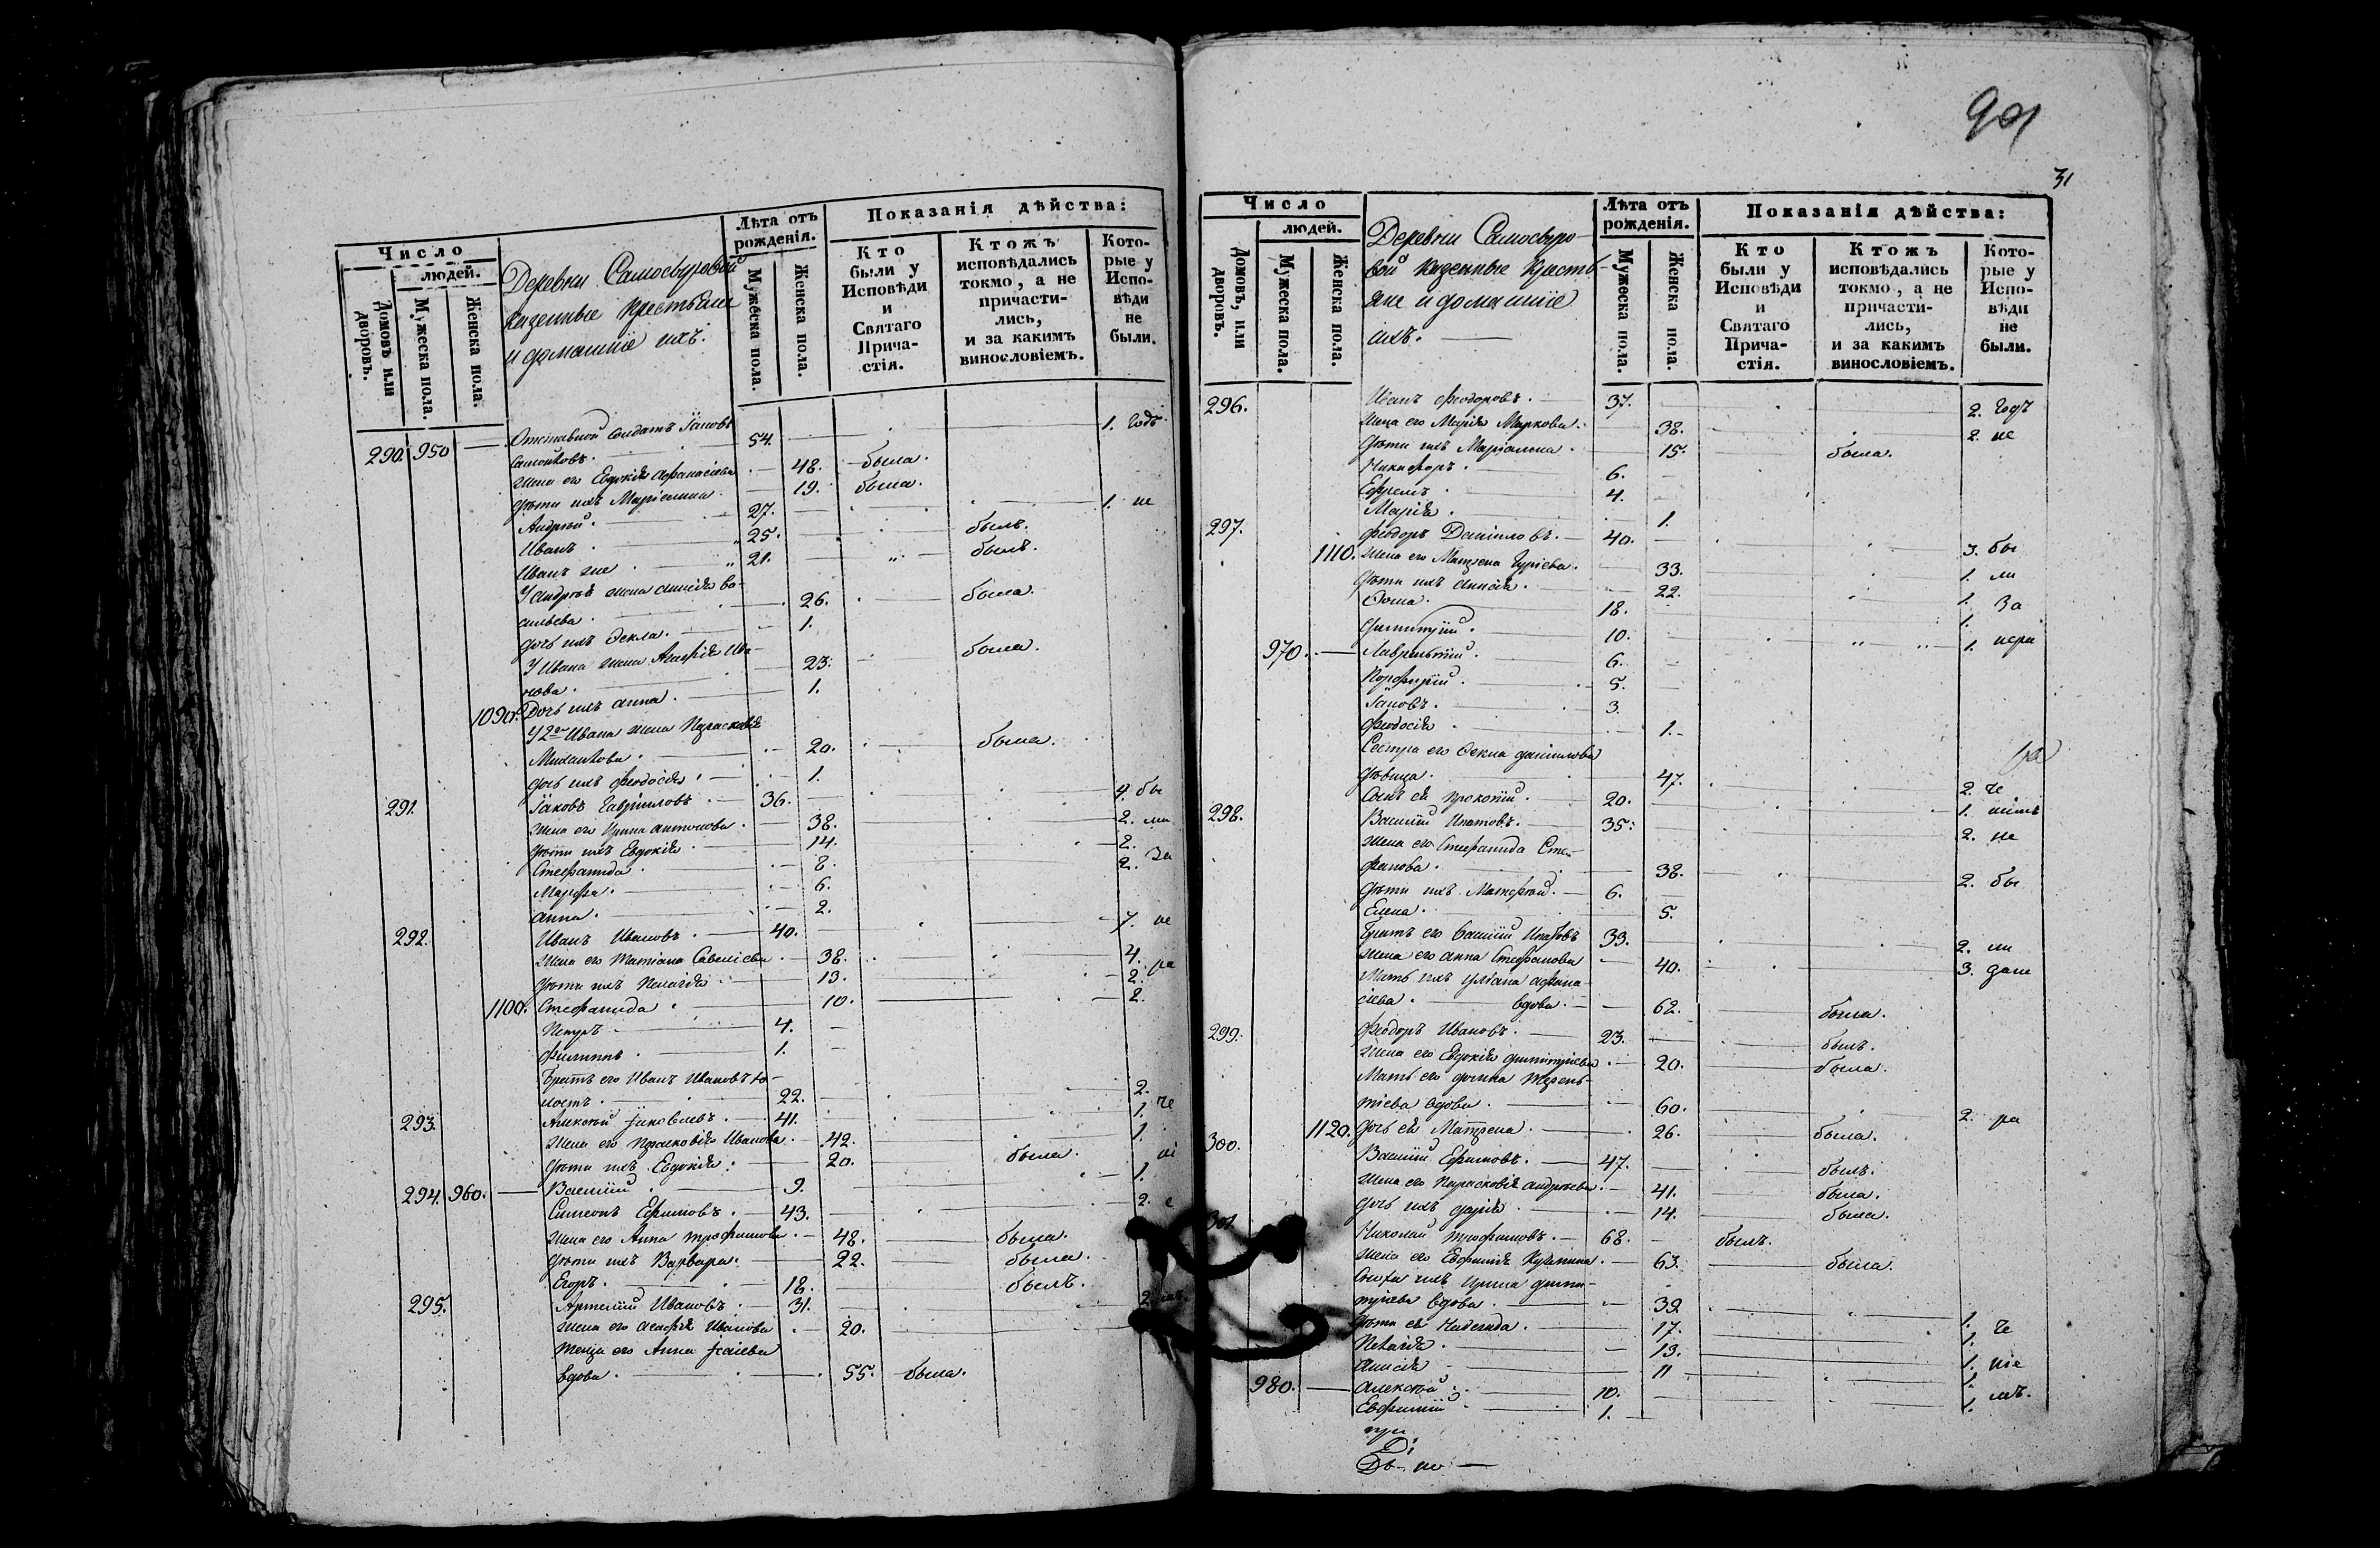 Число
людей.
Домовъ или дворовъ.
Мужеска пола.
Женска пола.
Деревни Самосвуровой
казенные крестьяне
и домашніе ихъ.
Лѣта отъ рожденія.
Мужеска пола.
Женска пола.
Показанія дѣйства:
Кто были у Исповѣди и Святаго Причастія.
Ктожъ исповѣдались токмо, а не причастились, и за какимъ винословіемъ.
Которые у Исповѣди не были.
290. 950 — Отставной солдатъ Іаковъ 54. 1. годъ
Самойловъ.
Жена его Евдокія Афанасіева 48. была.
Дѣти ихъ Маріамна 19. была.
Андрей. 27. 1. не
Иванъ. 25. былъ.
Иванъ же 21. былъ.
У Андрея жена Анисія Ва-
сильева. 26. была.
дочь ихъ Ѳекла. 1.
У Ивана жена Агафія Ива-
нова. 23. была.
1090. Дочь ихъ Анна. 1.
У 2го Ивана жена Параскевія
Михайлова. 20. была.
дочь ихъ Феодосія 1.
291. Іаковъ Гавріиловъ 36. 4. бы
Жена его Ирина Антонова 38. 2. ли
Дѣти ихъ Евдокія 14. 2.
Стефанида 8. 2. За
Марфа. 6.
Анна. 2.
292. Иванъ Ивановъ. 40. 7. не
Жена его Татіана Савеліева 38. 4.
Дѣти ихъ Пелагія 13. 2. ра
1100. Стефанида 10. 2.
Петръ 4.
Филиппъ 1.
Братъ его Иванъ Ивановъ хо-
лостъ. 22. 2.
293. Алексѣй Іаковлевъ. 41. 1. че
Жена его Параскевія Иванова 42. 1.
Дѣти ихъ Евдокія 20. была.
294. 960. — Василій 9. 1.
Симеонъ Ефимовъ. 43. 2. е
Жена его Анна Трофимова 48. была.
Дѣти ихъ Варвара. 22. была.
Егоръ. 18. былъ.
295. Артемій Ивановъ 31. 2.
Жена его Агафія Иванова 20.
Теща его Анна Исаіева
вдова. 55. была.
901
31
Число
людей.
Домовъ, или дворовъ.
Мужеска пола.
Женска пола.
Деревни Самосвуро-
вой казенные кресть-
яне и домашніе
ихъ.
Лѣта отъ рожденія.
Мужеска пола.
Женска пола.
Показанія дѣйства:
Кто были у Исповѣди и Святаго Причастія.
Ктожъ исповѣдались токмо, а не причастились, и за какимъ винословіемъ.
Которые у Исповѣди не были.
296. Иванъ Феодоровъ. 37. 2. годъ
Жена его Марія Маркова. 38. 2. не
Дѣти ихъ Маріамна 15. была.
Никифоръ. 6.
Ефремъ 4.
Марія 1.
297. Феодоръ Даніиловъ. 40. 3. бы
1110. Жена его Матрена Гуріева. 33. 1. ли
Дѣти ихъ Анисія. 22. 1. За
Ѳома. 18. 1.
Димитрій. 10. 1. нера
970. — Лаврентій. 6.
Порфирій. 5.
Іаковъ. 3.
Феодосія 1.
Сестра его Ѳекла Даніилова
дѣвица. 47. 2. че
Сынъ ея Прокопій. 20. 1. ніемъ
298. Василій Ипатовъ. 35. 2. не
Жена его Стефанида Сте-
фанова. 38. 2. бы
Дѣти ихъ Матѳей. 6.
Елена. 5.
Братъ его Василій Ипатовъ 33. 2. ли
Жена его Анна Стефанова 40. 3. даже
Мать ихъ Уліана Аѳана-
сіева. вдова. 62. была.
299. Феодоръ Ивановъ. 23. былъ.
Жена его Евдокія Димитріева 20. была.
Мать его Домна Терень-
тіева вдова. 60. 2. ра
1120. Дочь ея Матрена. 26. была.
300. Василій Ефимовъ. 47. былъ.
Жена его Параскевія Андреева. 41. была.
Дочь ихъ Дарія 14. была.
301. Николай Трофимовъ. 68. былъ.
Жена его Евфимія Кузмина. 63. была.
Сноха ихъ Ирина Дими-
тріева вдова. 39. 1.
Дѣти ея Надежда. 17. 1. че
Пелагія. 13. 1. ніе
Анисія 11 1.
980. — Алексѣй 10. 1. мъ.
Евфимій 1.